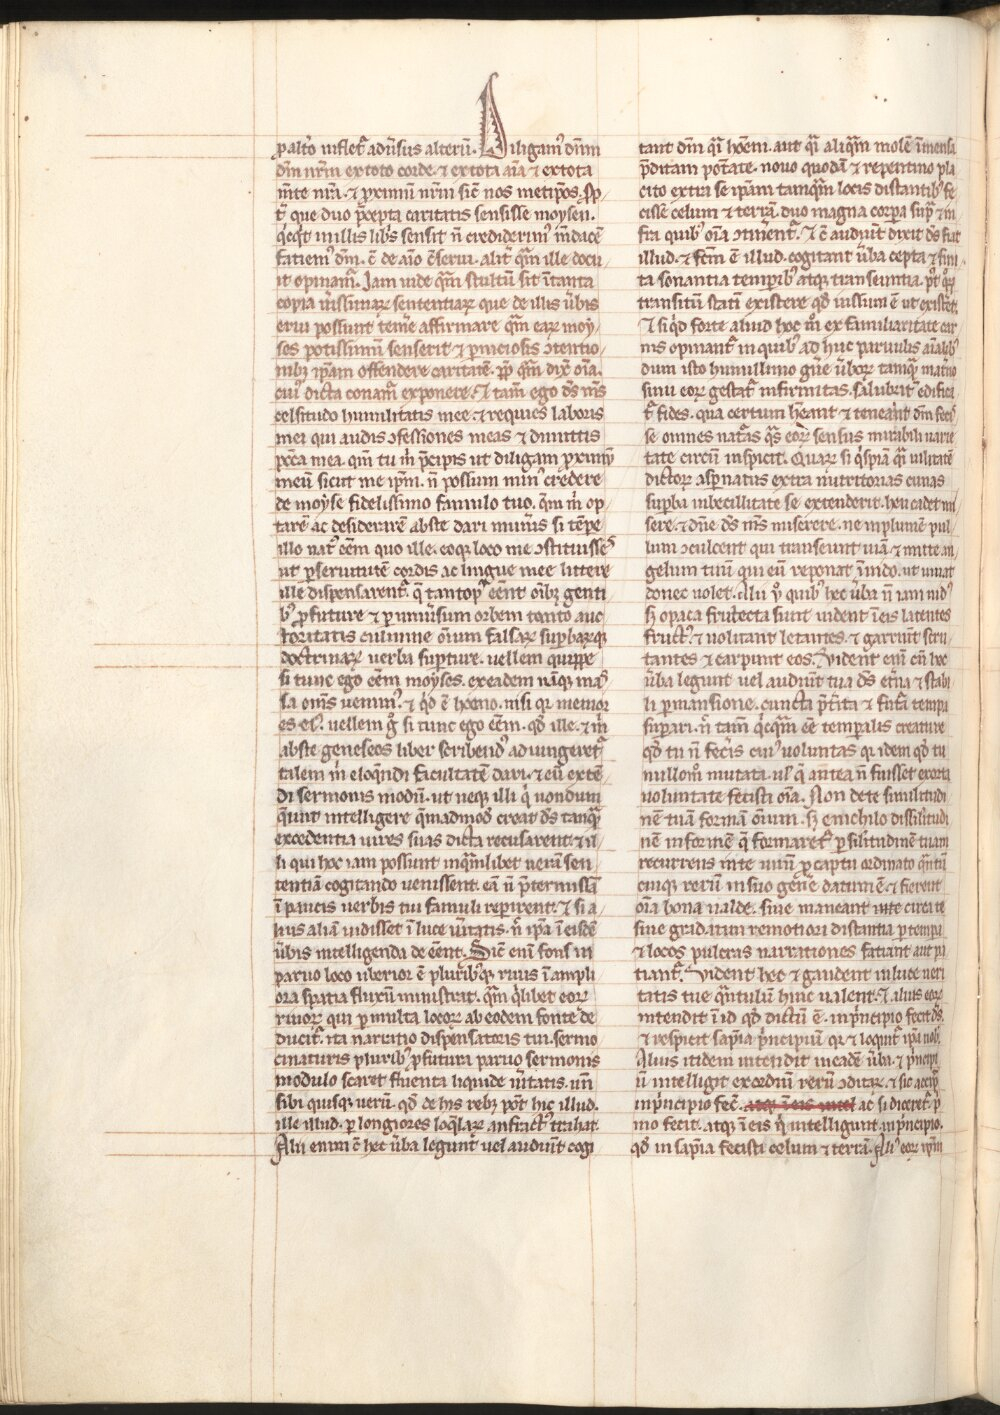 ꝑ alto inflet᷑ adúsus alterū. Diligam᷒ dn̄m
dm̄ nr̄m ex toto corde. ⁊ ex tota aīa ⁊ ex tota
m̄te nr̄a. ⁊ ꝓximū nr̄m sic̄ nos metip̄os. ꝓp
t̄ que duo p̄cepta caritatis sensisse moysen.
q̇cq̇t in illis lib̄s sensit n̄ crediderim᷒ m̄dacē
fatiem᷒ dn̄m. c̄ de aīo c̄serui. alit̄ q̄m ille docu
it opinam᷑. Iam uide q̄m stultū sit ī tanta
copia ūissimaꝝ sententiaꝝ que de illis ūbis
erui possunt tem̄e affirmare q̄m eaꝝ moy
ses potissimū senserit ⁊ ꝑniciosis ↄtentio
nibꝫ ip̄am offendere caritatē. ꝓp̄ q̄m dix̄ oīa.
cui᷒ dicta conam᷑ exponere. Et tam̄ ego ds̄ m̄s
celsitudo humilitatis mee ⁊ requies laboris
mei qui audis ↄfessiones meas ⁊ dimittis
pc̄ca mea. qm̄ tu m̄ p̄cipis ut diligam ꝓximū
meū sicut me ip̄m. n̄ possum min᷒ credere
de moyse fidelissimo famulo tuo. q̄m m̄ op
tarē ac desiderarē abs te dari mun̄is si tēpe
illo nat᷒ eēm quo ille. eoqꝫ loco me ↄstituisses
ut ꝑ seruitutē cordis ac lingue mee littere
ille dispensarent᷑. q̄ tantoꝑ eēnt oīb᷒ genti
b᷒ ꝓfuture ⁊ ꝑ uniūsum orbem tanto auc
toritatis culmine oīum falsaꝝ suꝑbaꝝqꝫ
doctrinaꝝ uerba suꝑture. uellem quippe
si tunc ego eēm moyses. ex eadem nāqꝫ mas
sa om̄s uenim᷒. ⁊ q̇d ē homo. nisi qꝛ memor
es ei᷒. uellem g̊ si tunc ego eēm. qđ ille. ⁊ m̄
abs te geneseos liber scribend᷒ adiungeret᷑
talem m̄ eloq̄ndi facultatē dari. ⁊ eū texē
di sermonis modū. ut neqꝫ illi q̇ nondum
q̄unt intelligere q̄madmođ creat ds̄ tanq̄
excedentia uires suas dicta recusarent. ⁊ il
li qui hoc iam possunt in q̄mlibet uerā sen
tentiā cogitando uenissent. eā n̄ p̄termissā
ī paucis uerbis tui famuli repirent. Et si a
lius aliā uidisset ī luce ūitatis. n̄ ip̄a ī eisdē
ūbis intelligenda deeēnt. Sic̄ enī fons in
paruo loco uberior ē pluribꝰqꝫ riuis ī ampli
ora spatia fluxū ministrat. q̄m q̇libet eoꝝ
riuoꝝ qui ꝑ multa locoꝝ ab eodem fonte de
ducit᷑. ita narratio dispensatoris tui. sermo
cinaturis plurib᷒ ꝓfutura paruo sermonis
modulo scatet fluenta liquide ūitatis. un̄
sibi quisqꝫ uerū. qđ de his rebꝫ pōt hic illud.
ille illud. ꝑ longiores loq̄laꝝ anfract᷒ trahat.
Alii enim c̄ hec ūba legunt uel audiūt cogi
tant dm̄ q̄i hoīem. aut q̄i aliq̄m molē īmensa
p̄ditam potestate. nouo quodā ⁊ repentino pla
cito extra se ip̄am tamq̄m locis distantib᷒ fe
cisse celum ⁊ terrā. duo magna corꝑa supᷓ ⁊ in
fra quib᷒ oīa ↄtinent᷑. Et c̄ audiūt dixit ds̄ fiat
illud. ⁊ fc̄m ē illud. cogitant ūba cepta ⁊ fini
ta sonantia temporib᷒ atqꝫ transeuntia. pᷤt qꝝ
transitū statī existere qđ iussum ē ut existet.
Et si q̇d forte aliud hoc m̊ ex familiaritate car
nis opinant᷑ in quib᷒ ad huc paruulis aīalib᷒
dum isto humillimo gn̄e ūboꝝ tamq̄ mat̄no
sinu eoꝝ gestat᷑ infirmitas. salubrit̄ edifica
t᷑ fides. qua certum hēant ⁊ teneant dm̄ fecis
se omnes nat̄as q̄s eoꝝ sensus mirabili uarie
tate circū inspicit. Quaꝝ si q̇spiā q̄i uilitatē
dictoꝝ aspnatus extra nutritorias cunas
suꝑba inbecillitate se extenderit. heu cadet mi
sere. ⁊ dn̄e ds̄ m̄s miserere. ne inplumē pul
lum ↄculcent qui transeunt uiā. ⁊ mitte an
gelum tuū qui eū reponat ī nido. ut uiuat
donec uolet. Alii ů quib᷒ hec ūba n̄ iam nid᷒
sꝫ opaca frutecta sunt uident ī eis latentes
fruct᷒. ⁊ uolitant letantes. ⁊ garriūt scru
tantes ⁊ carpunt eos. Vident enī cū hec
ūba legunt uel audiūt tua ds̄ et̄na ⁊ stabi
li ꝑmansione. cuncta p̄t̄ita ⁊ fut̄a tempa
suꝑari. n̄ tam̄ q̇cq̄m eē temꝑalis creature
qđ tu n̄ fec̄is cui᷒ uoluntas qꝛ idem qđ tu
nullom̊ mutata. ul᷒ q̄ antea n̄ fuisset exorta
uoluntate fecisti oīa. Non de te similitudi
nē tuā formā oīum. sꝫ ex nichilo dissilitudi
nē informē q̄ formaret᷑ ꝑ silitudinē tuam
recurrens in te unū ꝓ captu ordinato q̄ntū
cuiqꝫ rerū in suo gen̄e datum ē. ⁊ fierent
oīa bona ualde. siue maneant circa te
siue gradatim remotiori distantia ꝑ tempa
⁊ locos pulcras narrationes fatiant aut pa
tiant᷑. Vident hec ⁊ gaudent in luce ueri
tatis tue q̄ntulū hinc ualent. Et alius eoꝝ
intendit ī id qđ dictū ē. in pncipio fecit ds̄.
⁊ respicit sapīa pncipiū qꝛ ⁊ loqt᷑ ip̄a nob᷒.
Alius itidem intendit in eadē ūba. ⁊ pncipi
ū intelligit exordiū rerū ↄditaꝝ. ⁊ sic accip̄
in pncipio fec̄. atqꝫ ī eis intel ac si diceret᷑ p
mo fecit. atqꝫ ī eis q̇ intelligunt in pncipio.
qđ in sapīa fecisti celum ⁊ terrā. Ali᷒ eoꝝ ip̄m